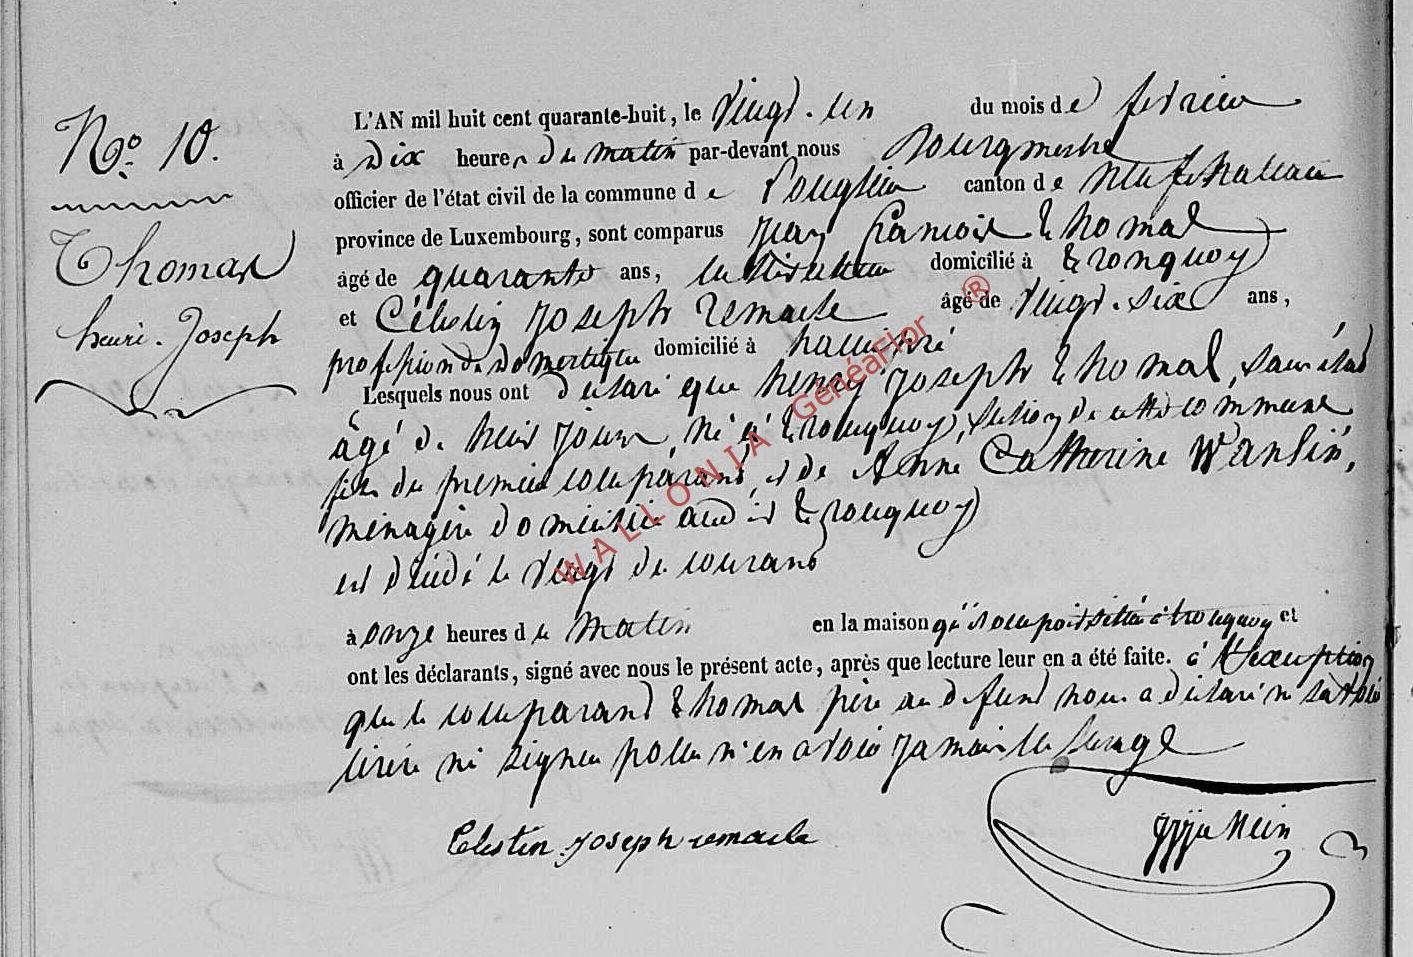 No. 10.
Thomas
henri. Joseph
L'AN mil huit cent quarante-huit, le vingt-un du mois de fevrier
à dix heures du matin par-devant nous Bourgmestre
officier de l'état civil de la commune de canton de neufchateau
province de Luxembourg, sont comparus jean francois thomas
âgé de quarante ans, cultivateur domicilié à tronquoy
et Célestin joseph remacle âgé de vingt-six ans,
profession de domestique domicilié à hamipré
Lesquels nous ont declaré que henry joseph thomas, sans état
âgé de huit jours né à tronquoy, section de cette commune
fils du premier comparant, et de Anne Catherine Wanlin,
menagère domiciliée audit tronquoy
est décédé le vingt du courant
à onze heures du matin en la maison qu'il occupoit située à tronquoy et
ont les déclarants, signé avec nous le présent acte, après que lecture leur en a été faite. à l'exception
que le comparant thomas père au defunt nous a déclaré ne savoir
écrire ni signer pour n'en avoir jamais eu l'usage
Celestin joseph remacle
WALLONIA GénéaFlor ®